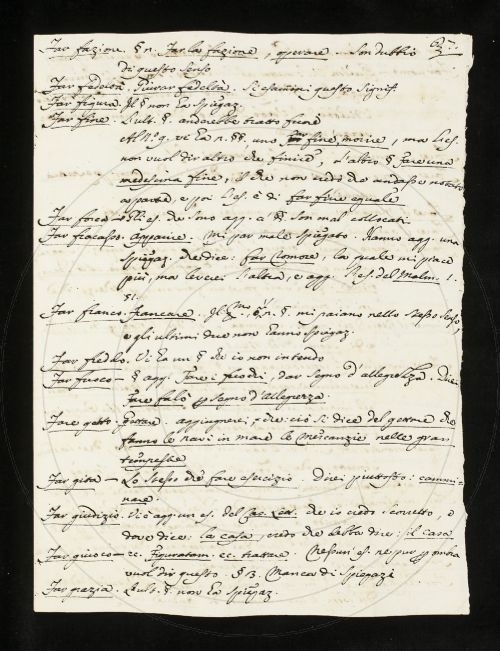 Far fazione. § n. Far la fazione, operare. Son dubbio
di questo senso
Far fedeltà. Giurar fedeltà. Si esamini questo signif.
Far figura. Il § non ha spiegaz.
Far fine. L'ult. §. anderebbe tratto fuora
Al N.° 9. vi ha n. §§, uno fine, morire, ma l'es.
non vuol dir altro che finire, l'altro § fare una
medesima fine, il che non credo che andasse notato
a parte e poi l'es. è di far fine eguale
Far foco — Gli es. che sono agg. a § son mal collocati.
Far fracasso. Apparire. Mi par male spiegato. Hanno agg. una
spiegaz. che dice: far romore, la quale mi piace
più, ma leverei l'altra, e agg. l'es. del Malm. 1.
51.
Far franco. Francare. Il § n. §. mi paiano nello stesso senso,
e gli ultimi due non hanno spiegaz.
Far freddo. Vi ha un § che io non intendo
Far fuoco — § agg. Fare i fuochi, dar segno d'allegrezza. Direi
Fare falò p segno d'allegrezza.
Fare getto. Gettare. aggiugnerei, che ciò si dice del gettare che
fanno le navi in mare le mercanzie nelle gran
tempeste
Far gita — Lo stesso che fare esercizio. Direi piuttosto: cammi-
nare.
Far giudizio. Vi è agg. un es. del che io credo scorretto, e
dove dice: la casa, credo che debba dire: il caso
Far giuoco — ec. Figuratam. ec. trattare. Nessun es. ne pur p ombra
vuol dir questo. § 13. Manca di spiegaze
Far grazia. L'ult. §. non ha spiegaz.